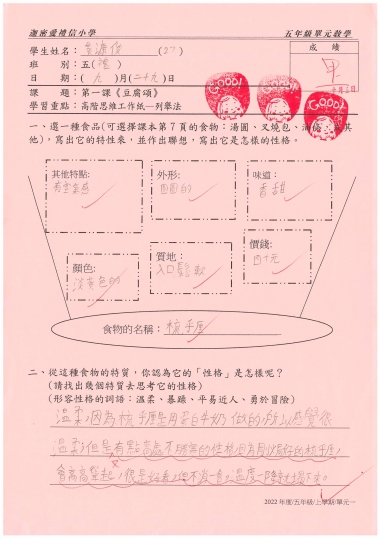 迦密愛禮信小學
五年級單元教學
學生姓名：(27)
成 績
班 別：五( )
日 期：(九)月(二十九)日
課 題：第一課《豆腐頌》
學習重點：高階思維工作紙—列舉法
GOOD!
GOOD!
GOOD!
一、選一種食品(可選擇課本第7頁的食物：湯圓、叉燒包、
他)，寫出它的特性來，並作出聯想，寫出它是怎樣的性格。
其他特點:
外形:
圓圓的
味道:
香甜
顏色:
淡黃色的
質地:
入口鬆軟
價錢:
四十元
食物的名稱：梳乎厘
二、從這種食物的特質，你認為它的「性格」是怎樣呢？
(請找出幾個特質去思考它的性格)
(形容性格的詞語：溫柔、暴躁、平易近人、勇於冒險)
溫柔，因為梳乎厘是用蛋白牛奶做的，所以感覺很
溫柔，但是有點高處不勝寒的性格，因為剛做好的梳乎厘，
會高高聳起，很是好看，但不消一會，溫度一降就塌下來。
2022年度/五年級/上學期/單元一